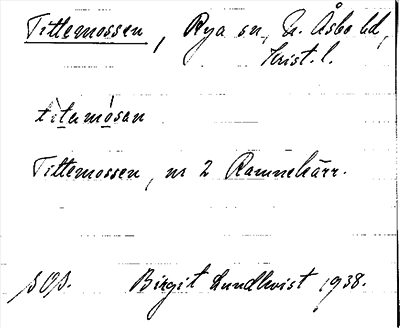 Tittemossen, Rya sn, N. Åsbo hd,
Krist. l.
titamosan
Tittemossen, nr 2 Ramnekärr.
Birgit Lundkvist 1938.